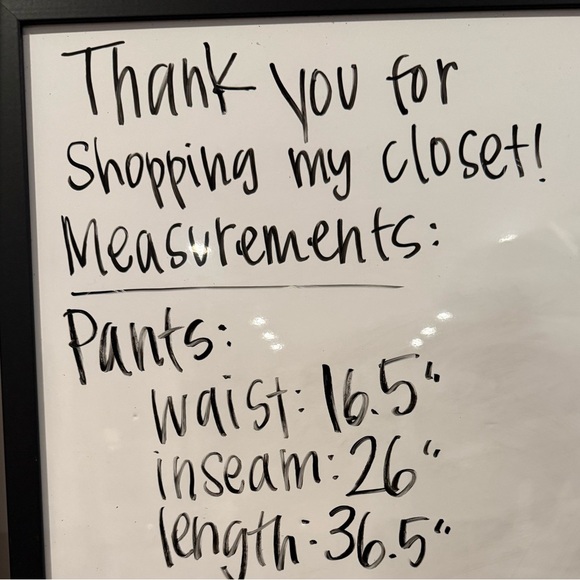 Thank you for
Shopping my closet!
Measurements:
Pants:
waist: 16.5"
inseam: 26"
length: 36.5"